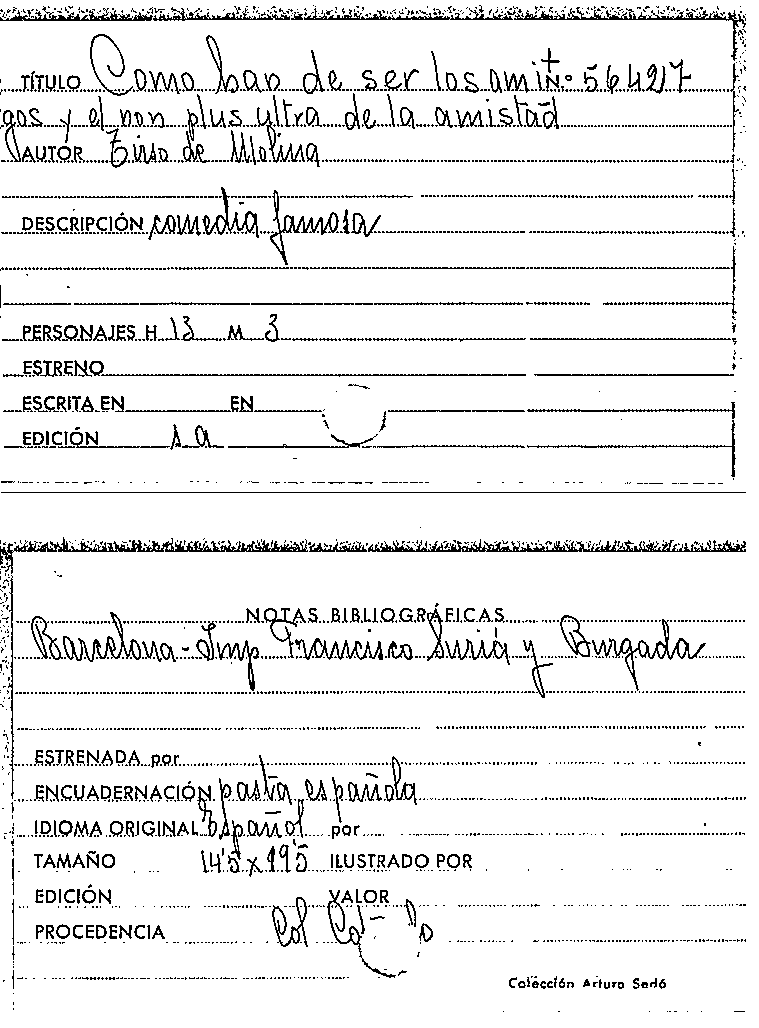 TÍTULO Como han de ser los ami N.º 56427
gos y el non plus ultra de la amistad
AUTOR Tirso de Molina
DESCRIPCIÓN comedia famosa
PERSONAJES H 13 M 3
ESTRENO
ESCRITA EN EN
EDICIÓN s a
NOTAS BIBLIOGRÁFICAS
Barcelona - Imp Francisco Suriá y Burgada
ESTRENADA por
ENCUADERNACIÓN pasta española
IDIOMA ORIGINAL Español por
TAMAÑO 14'5 x 19'5 ILUSTRADO POR
EDICIÓN VALOR
PROCEDENCIA Col
Colección Arturo Sedó